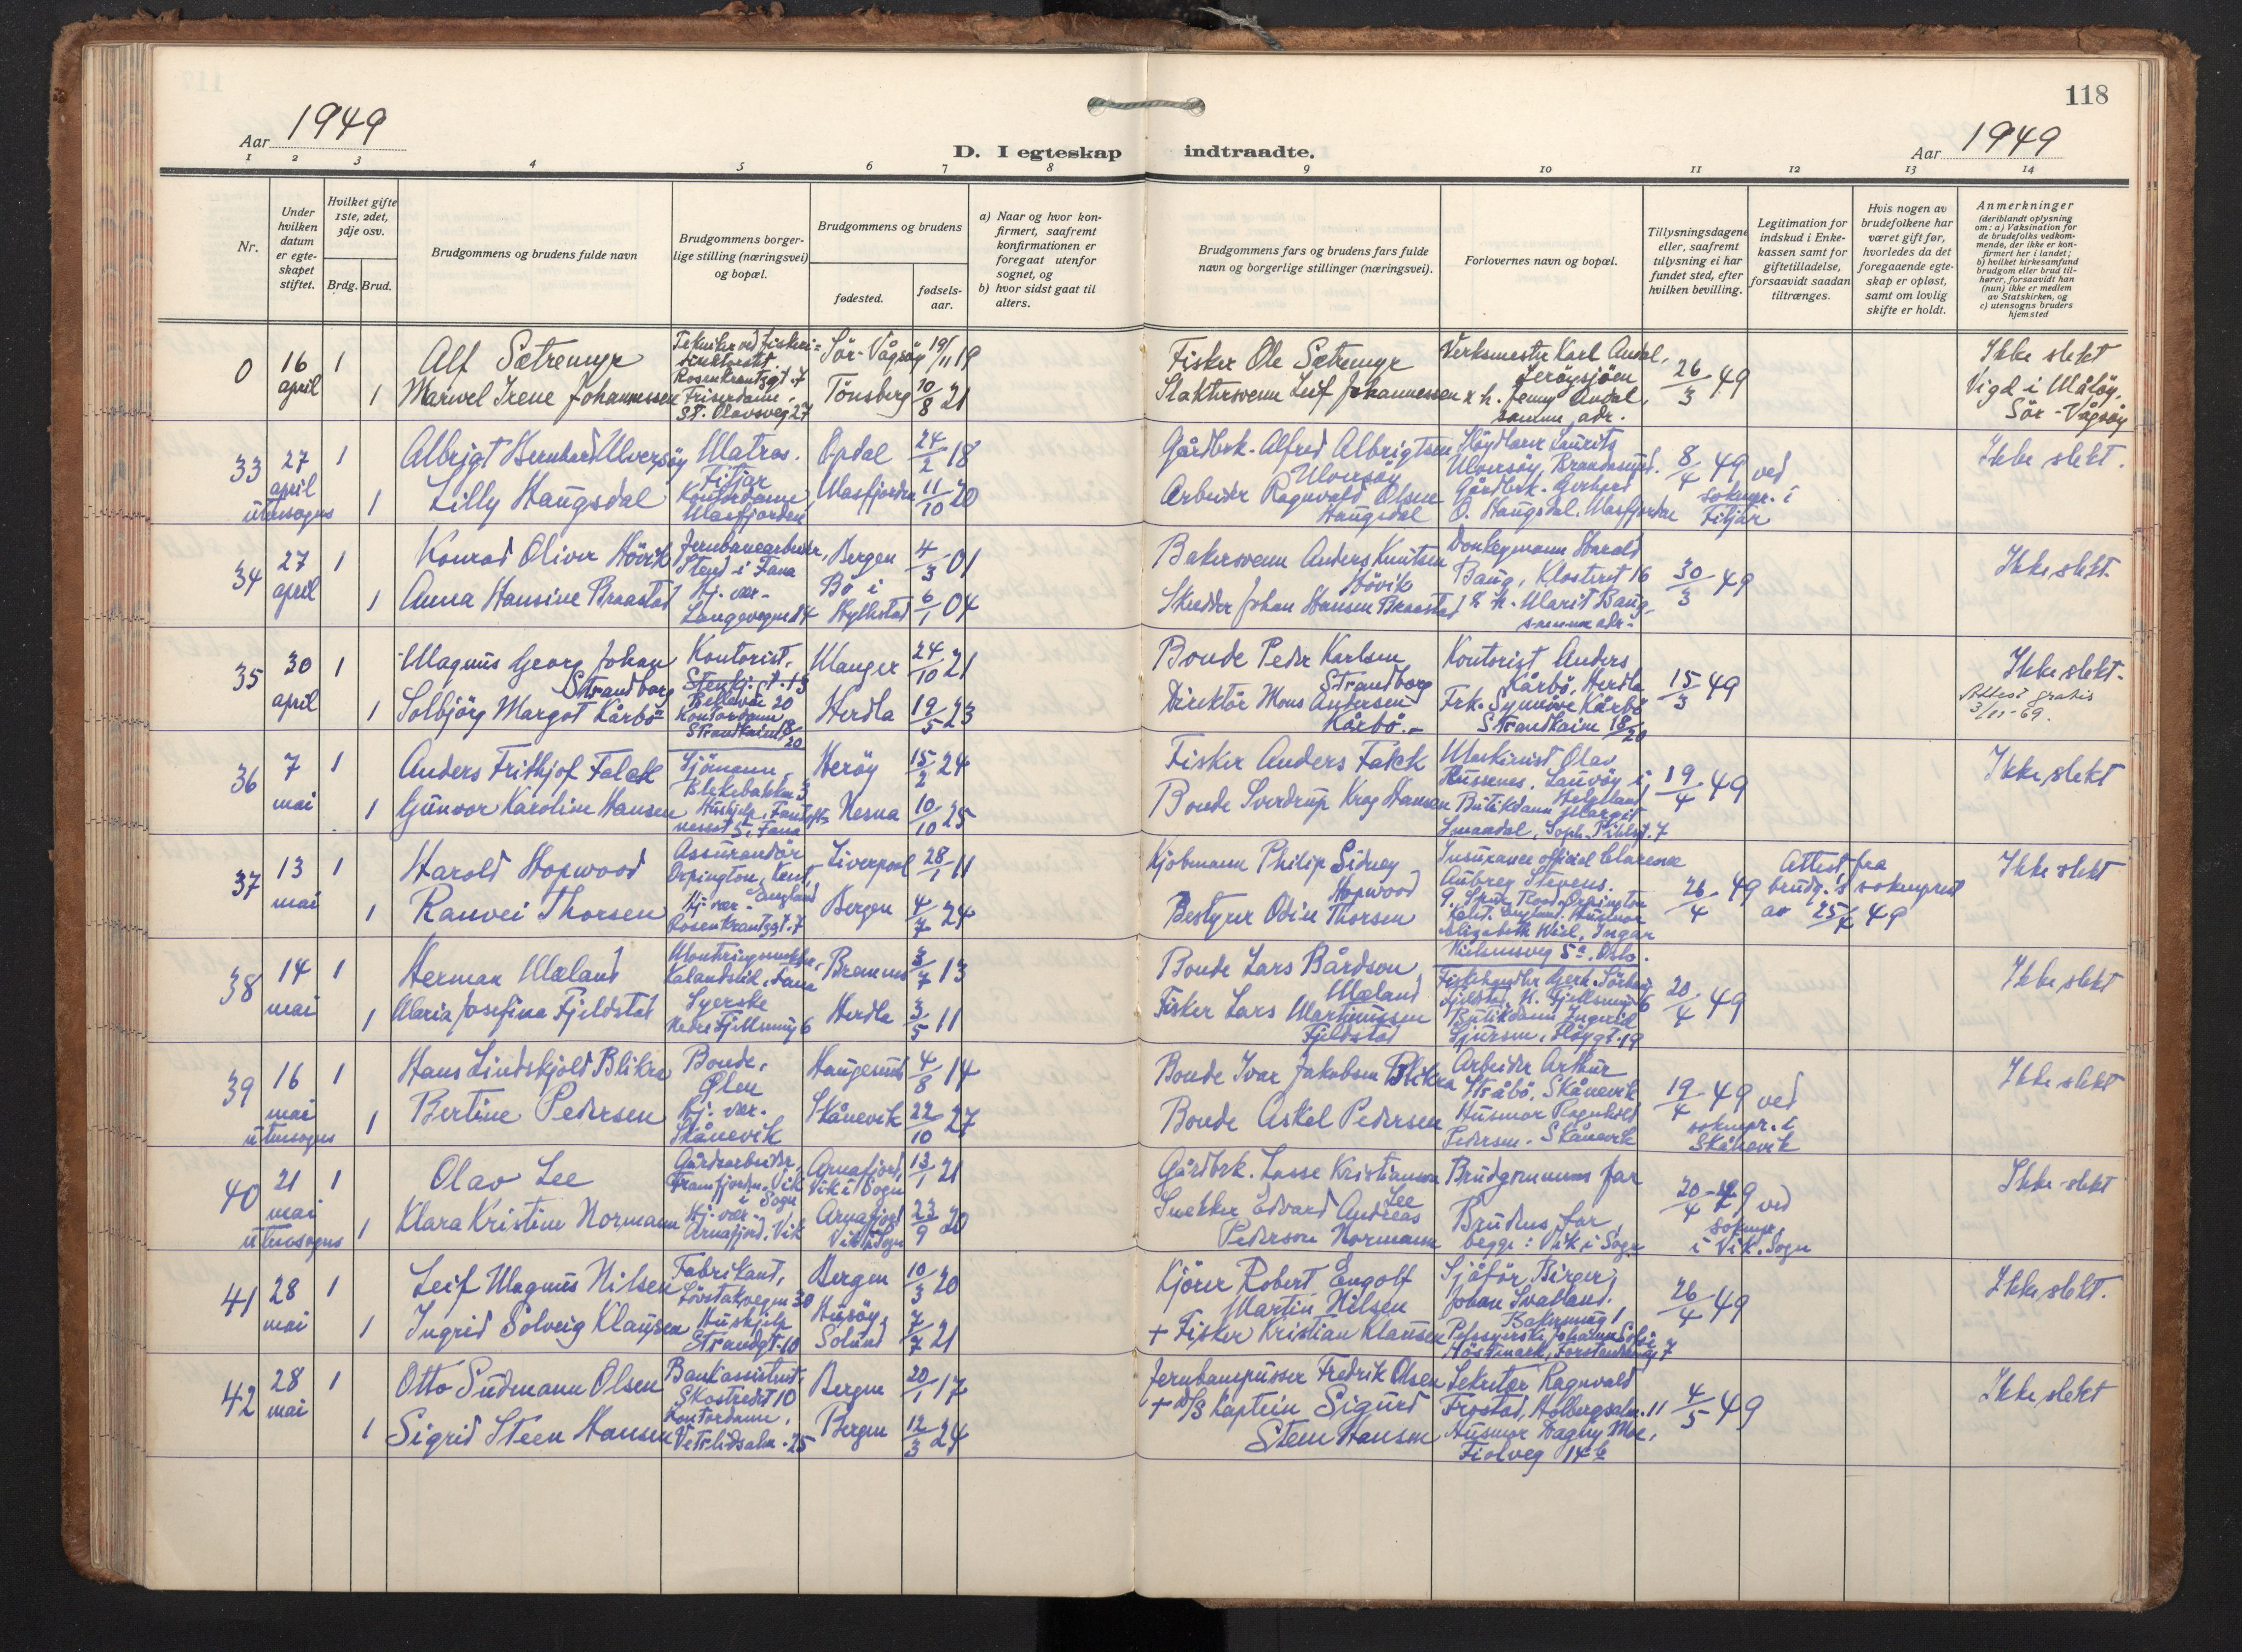 118
Aar 1949
D. I egteskap indtraadte.
Aar 1949
1 2 3 4 5 6 7 8 9 10 11 12 13 14
Nr.
Under hvilken datum er egte-skapet stiftet.
Hvilket gifte 1ste, 2det, 3dje osv.
Brdg. Brud.
Brudgommens og brudens fulde navn
Brudgommens borger-lige stilling (næringsvei) og bopæl.
Brudgommens og brudens
fødested.
fødsels-aar.
a) Naar og hvor kon-firmert, saafremt konfirmationen er foregaat utenfor sognet, og
b) hvor sidst gaat til alters.
Brudgommens fars og brudens fars fulde navn og borgerlige stillinger (næringsvei).
Forlovernes navn og bopæl.
Tillysningsdagene eller, saafremt tillysning ei har fundet sted, efter hvilken bevilling.
Legitimation for indskud i Enke-kassen samt for giftetilladelse, forsaavidt saadan tiltrænges.
Hvis nogen av brudefolkene har været gift før, hvorledes da det foregaaende egte-skap er opløst, samt om lovlig skifte er holdt.
Anmerkninger
(deriblandt oplysning om: a) Vaksination for de brudefolks vedkom-mende, der ikke er kon-firmert her i landet;
b) hvilket kirkesamfund brudgom eller brud til-hører, forsaavidt han (hun) ikke er medlem av Statskirken, og
c) utensogns bruders hjemsted
0 16 april 1 Alf Sætremyr Tekniker ved fiskeri= Rosenkrantzgt. 7 Sör-Vågsöy 19/11 19 Fisker Ole Sætremyr Verksmester Karl Andal, 26/3 49 Ikke slekt
1 Marvel Irene Johannessen Friserdame, St. Olavsveg 27 Tönsberg 10/8 21 Slaktersvenn Leif Johannessen & h. Jenny Andal, samme adr. Vigd i Måløy, Sör-Vågsöy
33 27 april utensogns 1 Albrigt Bernhard Ulversøy Matros. Fitjar Opdal 24/2 18 Gårdbrk. Alfred Albrigtsen Ulversöy Laurits Ulversöy, Brandasund. 8/4 49 ved sokmpr. i Fitjar Ikke slekt.
1 Lilly Haugsdal Kontordame, Masfjorden Masfjorden 11/10 20 Arbeider Ragnvald Olsen Haugsdal Gårdbrk. Gerhard O. Haugsdal. Masfjorden
34 27 april 1 Konrad Oliver Hövik Jernbanearbeider, Stend i Fana Bergen 4/3 01 Bakersvenn Anders Knutsen Hövik Donkeymann Harald Baug, Klosteret 16 30/3 49 Ikke slekt.
1 Anna Hansine Braastad Hj. vær. Bö i Hyllestad 6/1 04 Skredder Johan Hansen Braastad & h. Marit Baug, samme adr.
35 30 april 1 Magnus Georg Johan Strandborg Kontorist, Bellevue 20 Manger 24/10 21 Bonde Peder Karlsen Strandborg Kontorist Anders Kårbö, Herdla 15/3 49 Ikke slekt.
1 Solbjörg Margot Kårbö Kontordame Strandkaien 18/20 Herdla 19/5 23 Direktör Mons Andersen Kårbö. Frk. Synnöve Kårbö Strandkaien 18/20 Attest gratis 3/11-69.
36 7 mai 1 Anders Frithjof Falck Sjömann, Blekebakken 3 Heröy 15/2 24 Fisker Anders Falck Maskinist Olav 19/4 49 Ikke slekt
1 Gunvor Karoline Hansen Nesna 10/10 25 Bonde Sverdrup Krog Hansen Butikdame Margit Smaadal, Soph. Pihlsgt. 7
37 13 mai 1 Harold Hopwood Assurandör Orpington, Kent, England Liverpool 28/1 11 Kjöbmann Philip Sidney Hopwood Insurance official Clarence Aubrey Stevens. 26/4 49 Attest fra brudg.'s sokneprest av 25/4 49 Ikke slekt
1 Ranvei Thorsen Hj. vær. Rosenkrantzgt. 7 Bergen 4/7 24 Bestyrer Odin Thorsen
38 14 mai 1 Herman Mæland Kalandseid, Fana Bremnes 3/7 13 Bonde Lars Bårdson Mæland 20/4 49 Ikke slekt
1 Maria Josefina Fjeldstad Syerske Nedre Fjellsmug 6 Herdla 3/5 11 Fisker Lars Martinussen Fjeldstad Butikdame Ingerid Sjursen, Höygt. 19
39 16 mai utensogns 1 Hans Lindskjold Blikra Bonde, Ølen Haugesund 4/8 14 Bonde Ivar Jakobsen Blikra Arbeider Arthur Stråbö, Skånevik 19/4 49 ved sokmpr. i Skånevik Ikke slekt
1 Bertine Pedersen Hj. vær. Skånevik Skånevik 22/10 27 Bonde Askel Pedersen Husmor Ragnhild Pedersen. Skånevik
40 21 mai utensogns 1 Olav Lee Gårdsarbeider, Framfjorden. Vik i Sogn Arnafjord, Vik i Sogn 13/1 21 Gårdbrk. Lasse Kristiansen Lee Brudgommens far 20/4 49 ved sokmpr. i Vik. Sogn Ikke slekt
1 Klara Kristine Normann Hj. vær. Arnafjord. Vik Arnafjord Vik i Sogn 23/9 20 Snekker Edvard Andreas Pederson Normann Brudens far begge: Vik i Sogn
41 28 mai 1 Leif Magnus Nilsen Fabrikant, Lövstakvegen 30 Bergen 10/3 20 Kjörer Robert Engolf Martin Nilsen Sjåför Birger Johan Svaland. Bakersmug 1 26/4 49 Ikke slekt.
1 Ingrid Solveig Klausen Hushjelp Strandgt. 10 Husöy, Solund 7/7 21 + Fisker Kristian Klausen
42 28 mai 1 Otto Sudmann Olsen Bankassistent, Skostredet 10 Bergen 20/1 17 Jernbanepusser Fredrik Olsen Sekretær Ragnvald Frostad, Holbergsalm. 11 4/5 49 Ikke slekt
1 Sigrid Steen Hansen Kontordame, Vetrlidsalm. 25 Bergen 12/3 24 + D/S Kaptein Sigurd Steen Hansen Husmor Dagny Moe, Fiolveg 14b